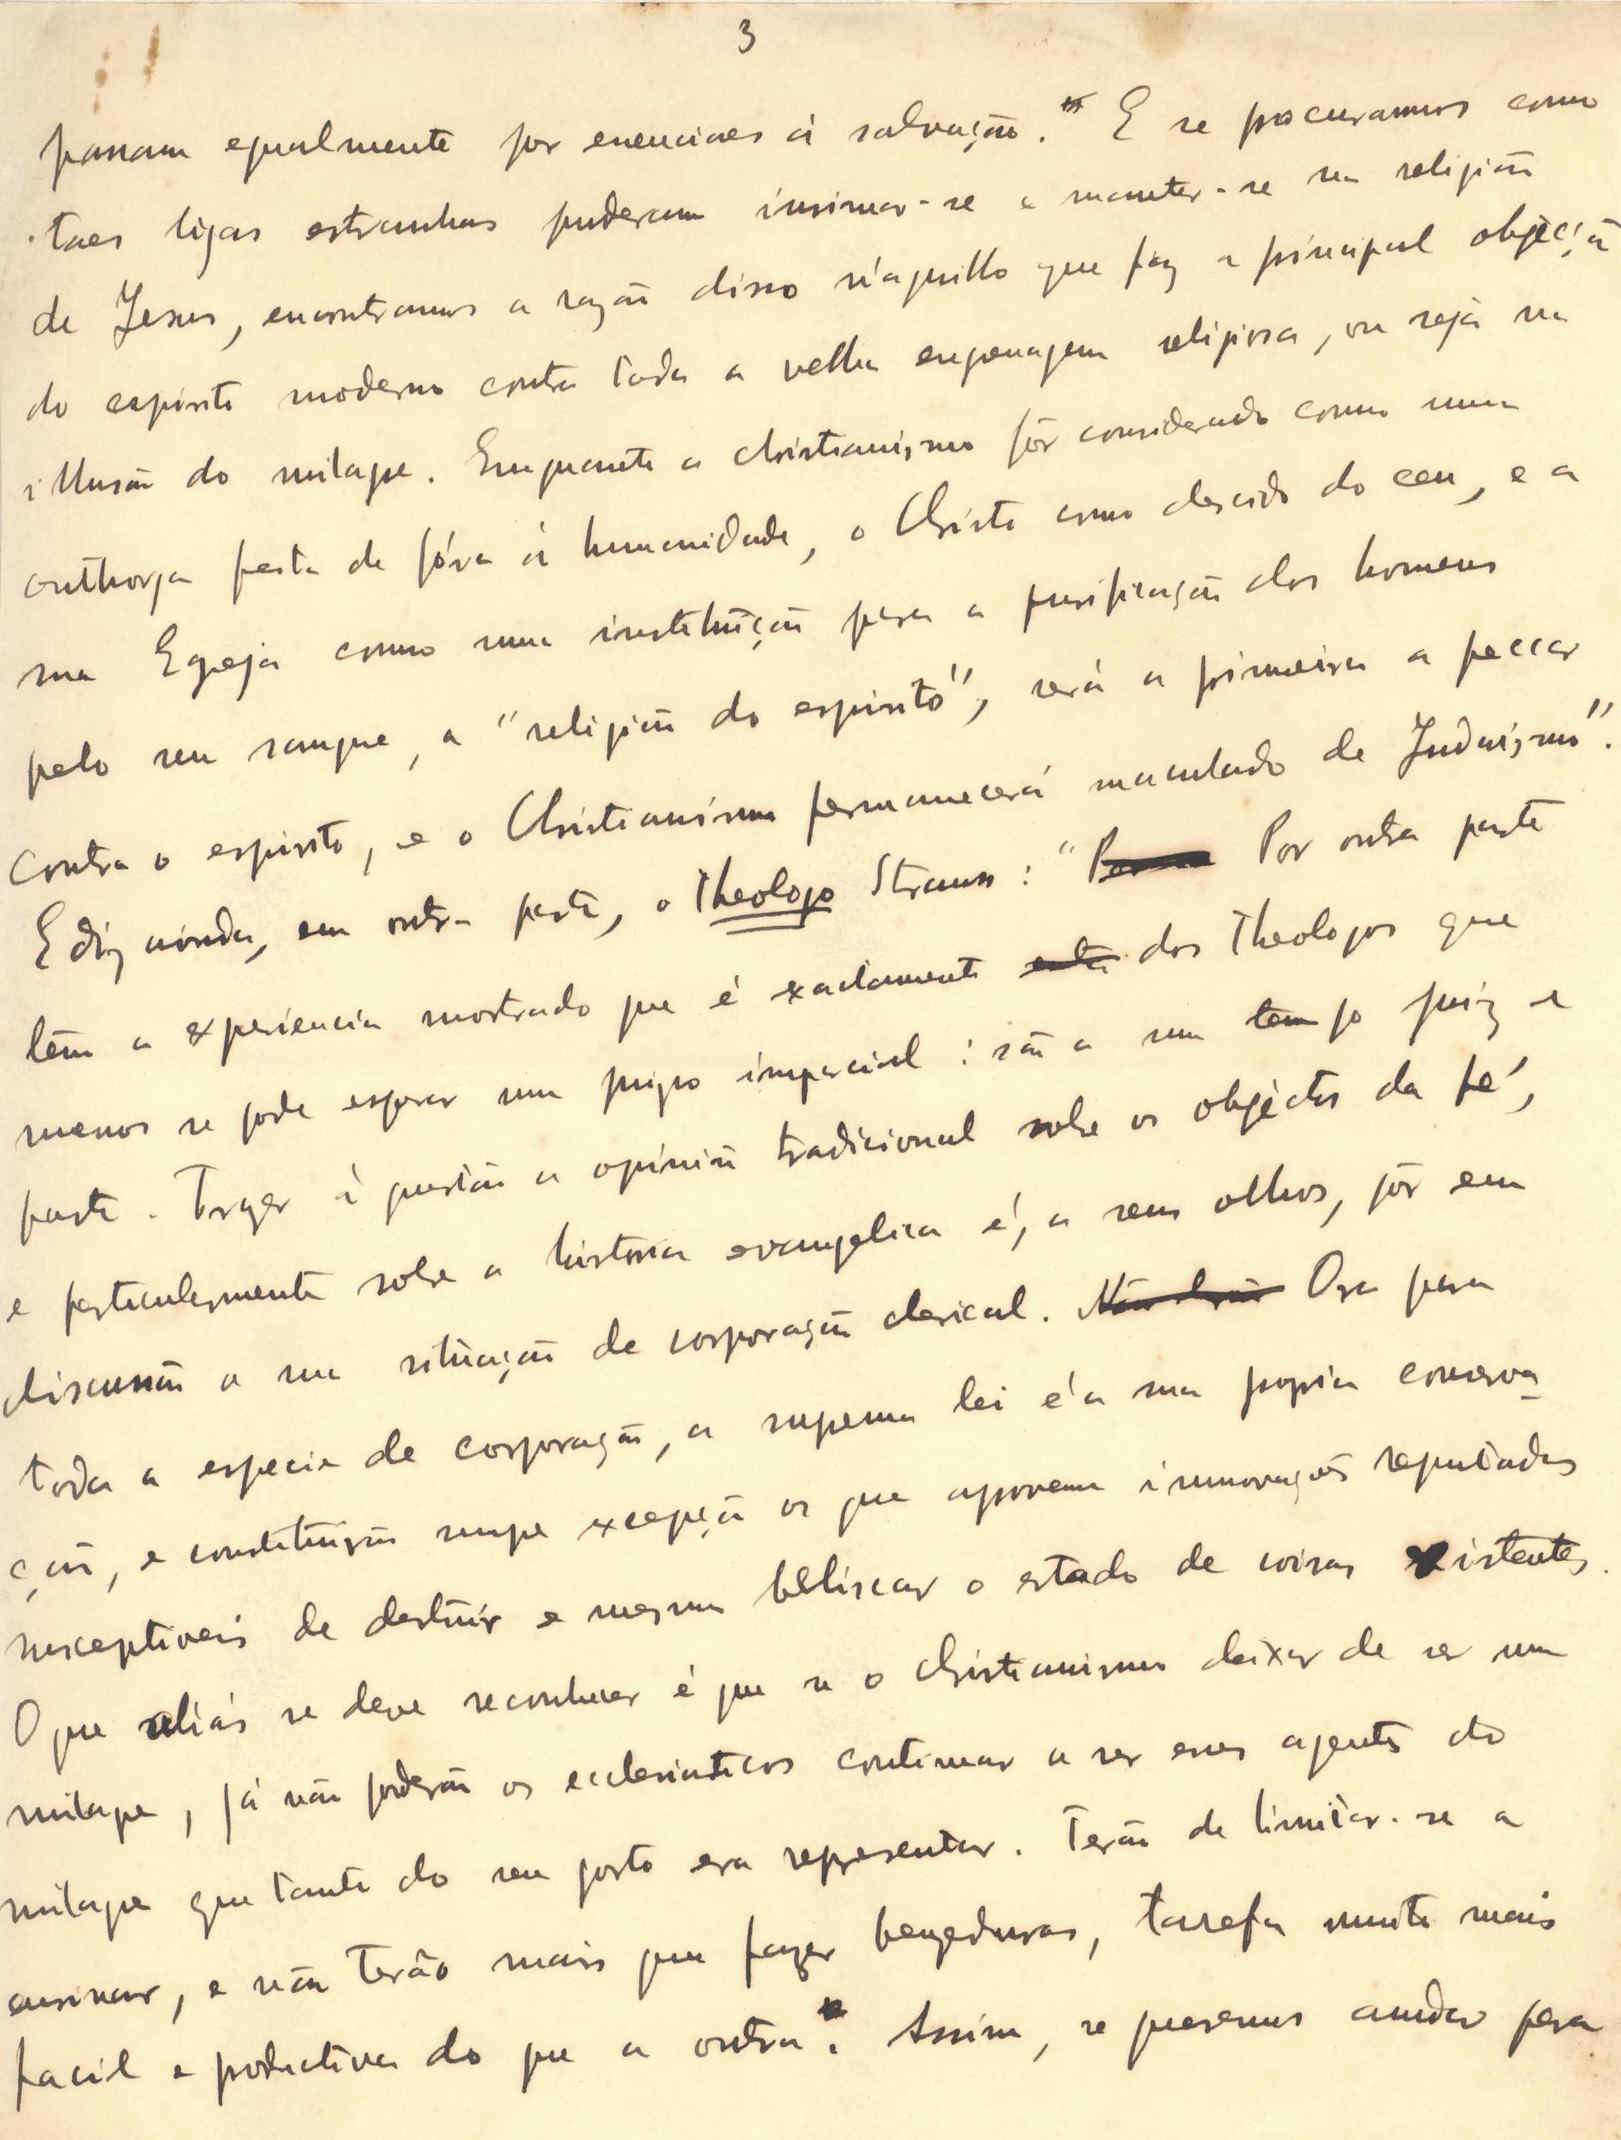 3
passam egualmente por essenciaes á salvação." E se procuramos como
taes ligas estranhas puderam insinuar-se e manter-se na religião
de Jesus, encontramos a razão disso n'aquillo que faz a principal objecçã
do espirito moderno contra toda a velha engrenagem religiosa, ou seja na
illusão do milagre. Emquanto o christianismo fôr considerado como uma
outhorga feita de fóra á humanidade, o Christo como descido do ceu, e a
sua Egreja como uma instituição para a purificação dos homens
pelo seu sangue, a "religião do espirito", será a primeira a peccar
contra o espirito, e o Christianismo permanecerá maculado de Judaismo".
E diz ainda, em outra parte, o Theologo Strauss: " Por outra parte
têm a experiencia mostrado que é exactamente dos Theologos que
menos se pode esperar um juizo imparcial: são a um tempo juiz e
parte. Trazer á questão a opinião tradicional sobre os objectos da fé,
e particularmente sobre a historia evangelica é, a seus olhos, pôr em
discussão a sua situação de corporação clerical. Ora para
toda a especie de corporação, a suprema lei é a sua propria conserva-
ção, e constituição sempre excepção os que approvem innovações reputadas
susceptiveis de destruir e mesmo beliscar o estado de coisas existentes.
O que aliás se deve reconhecer é que se o christianismo deixar de ser um
milagre, já não poderão os ecclesiasticos continuar a ser esses agentes do
milagre que tanto do seu gosto era representar. Terão de limitar-se a
ensinar, e não terão mais que fazer benzeduras, tarefa muito mais
facil e productiva do que a outra". Assim, se queremos andar para